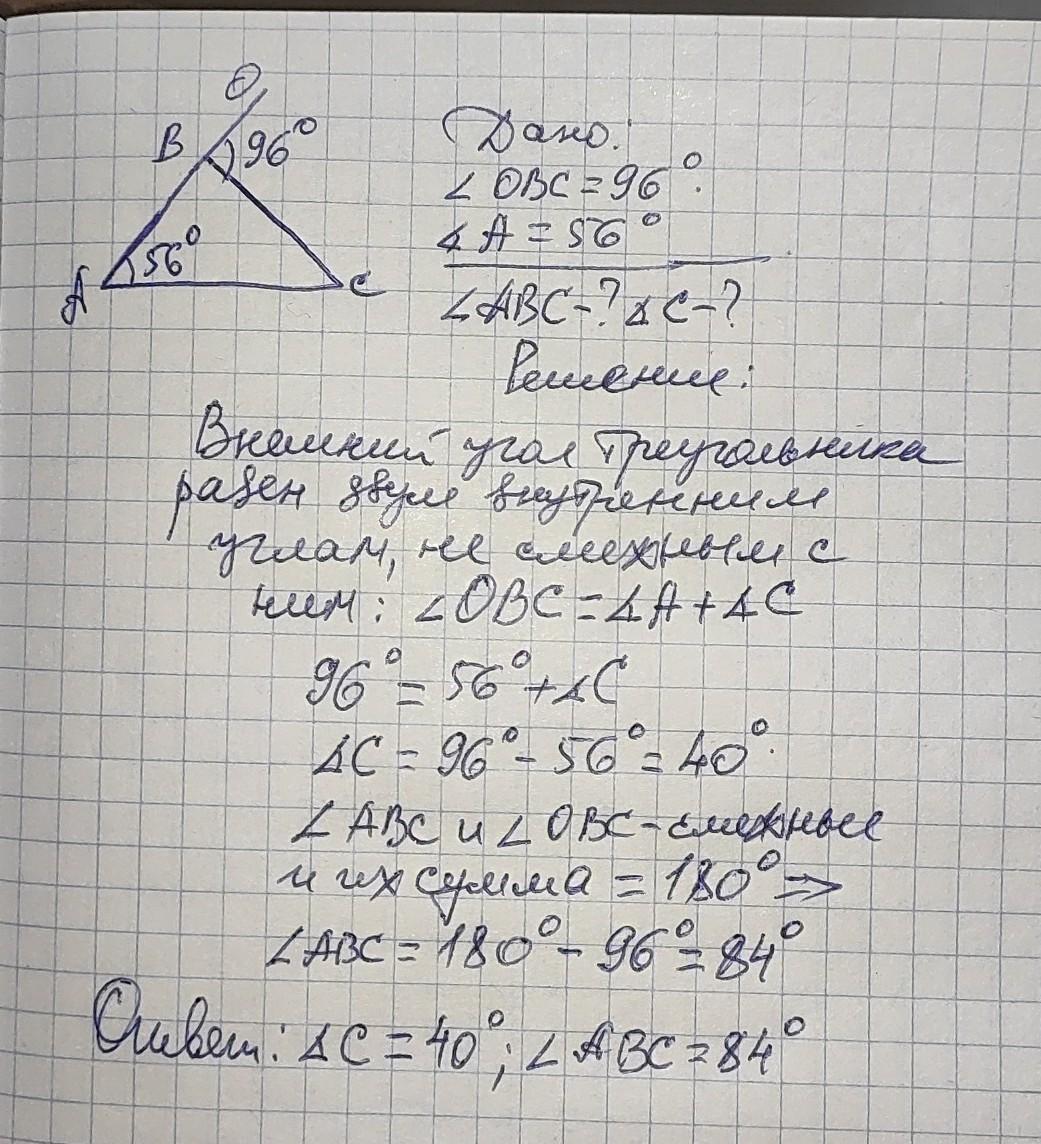 O
B 96°
56°
A C
Дано:
∠OBC = 96°.
∡A = 56°
∠ABC-? ∡C-?
Решение:
Внешний угол треугольника
равен двум внутренним
углам, не смежным с
ним: ∠OBC = ∡A + ∡C
96° = 56° + ∡C
∡C = 96° - 56° = 40°.
∠ABC и ∠OBC - смежные
и их сумма = 180° =>
∠ABC = 180° - 96° = 84°
Ответ: ∡C = 40°; ∠ABC = 84°